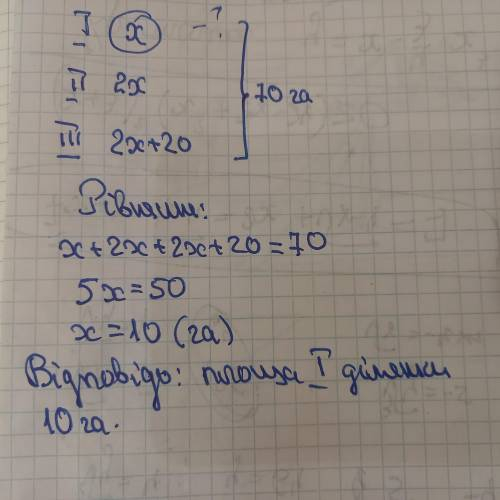 I x - ?
II 2x
70 га
III 2x+20
Рівняння:
x+2x+2x+20=70
5x=50
x=10 (га)
Відповідь: площа I ділянки
10 га.